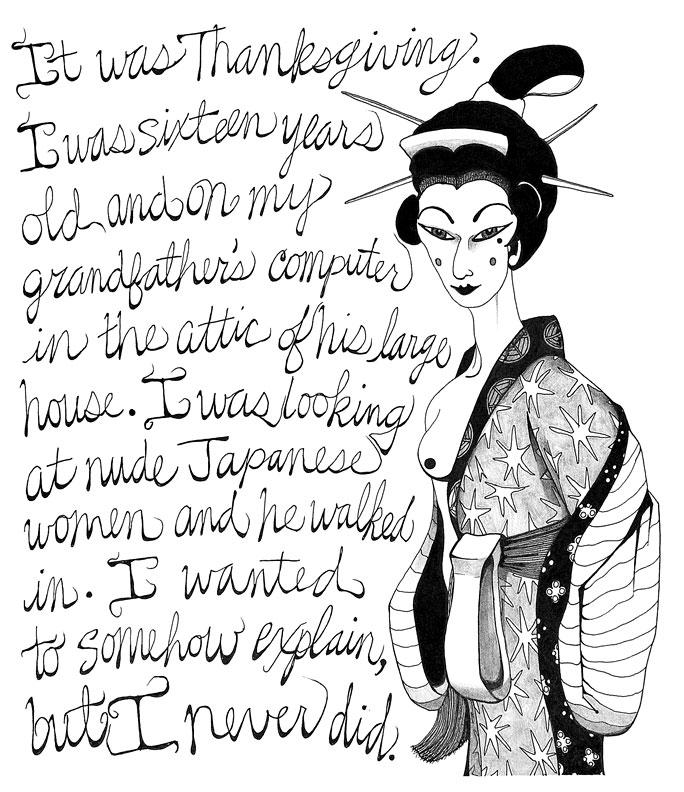 It was Thanksgiving.
I was sixteen years
old and on my
grandfather's computer
in the attic of his large
house. I was looking
at nude Japanese
women and he walked
in. I wanted
to somehow explain,
but I never did.